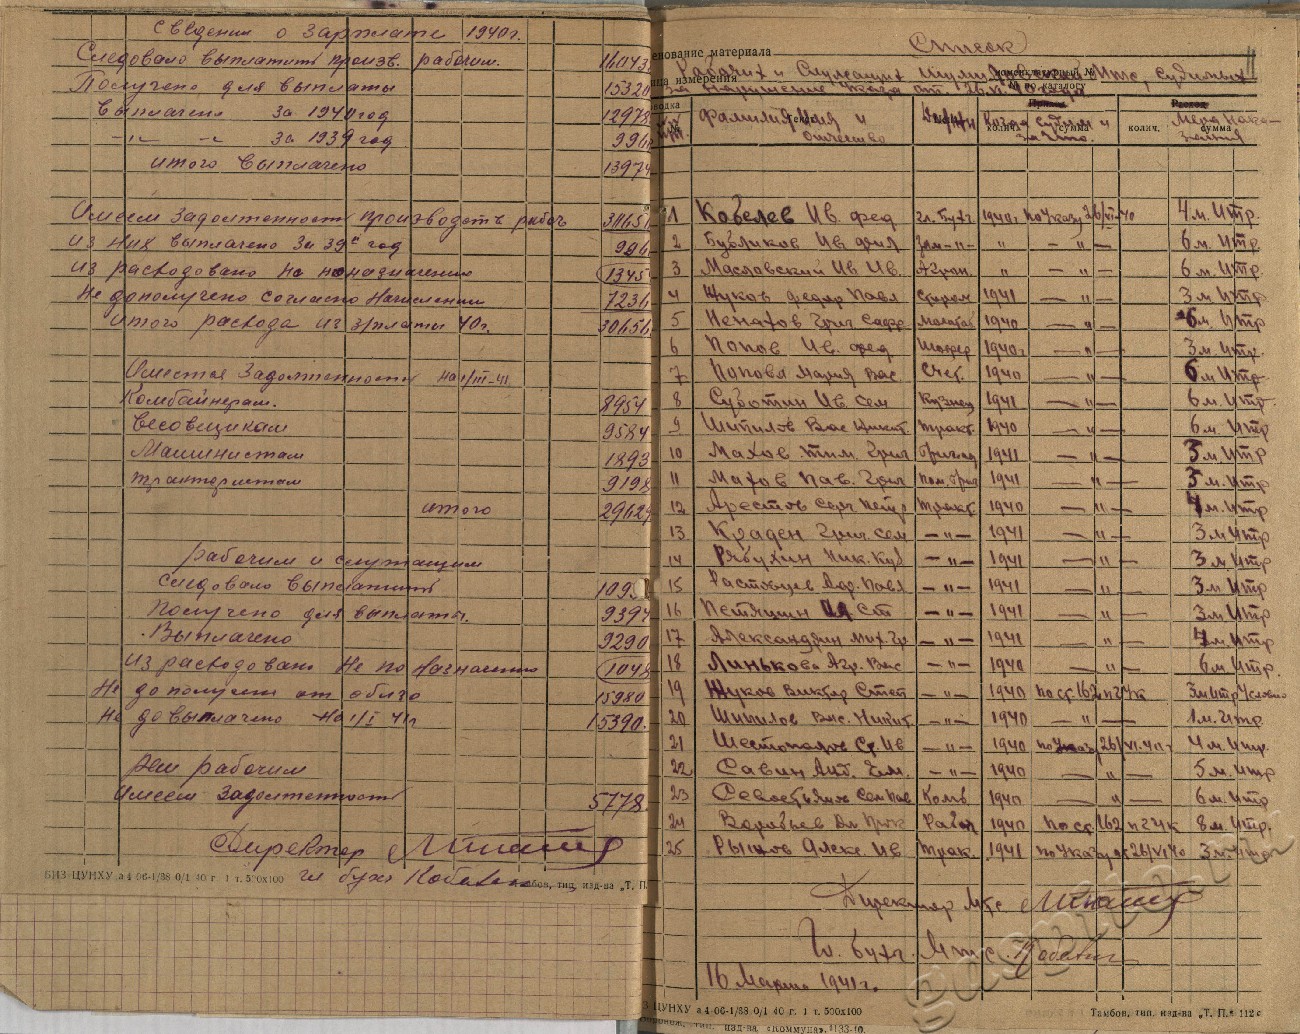 Сведения о зарплате 1940г.
Следовало выплатить произв. рабочим. 16043
Получено для выплаты 15320
выплачено за 1940 год 12978
—"— " за 1939 год 996
итого выплачено 13974
Имеем задолженность производств рабоч 30656
из них выплачено за 39й год 996
из расходовано не по назначению 1345
Не дополучено согласно начислений 7236
итого расхода из з/платы 40г. 30656
Имеется задолженность на 1/III-41
Комбайнерам. 8954
Весовщикам 9584
Машинистам 1893
трактористам 9198
итого 29629
Рабочим и служащим
следовало выплатить 109
Получено для выплаты. 9394
Выплачено 9290
из расходовано не по назначению 1048
Не дополучен от облзо 15980
Не довыплачено на 1/I 41г 15390.
Рем рабочим
Имеем задолженность 5778
Директор
гл бухг
БИЗ ЦУНХУ а 4-06-1/38 0/1 40 г. 1 т. 500х100 Тамбов, тип. изд-ва „Т. П.
Список
енование материала
Рабочих и Служащих МТС, судимых
ица измерения номенклатурный №
за нарушение указа от 26.VI
№ по каталогу
Приход Расход
фамилия Имя и отчество Когда судим и за что. Мера наказания
колич. сумма колич. сумма
1 Кобелев Ив. фед гл. Бухг 1940г по указу 26/VI-40 4 м. Итр.
2 Бубликов Ив фил Зам-"- " — " — 6 м. Итр.
3 Масловский Ив Ив. Агрон. " — " — 6 м. Итр.
4 Жуков федор Павл 1941 — " — 3 м. Итр
5 Ненахов Григ 1940 — " — 6 м. Итр
6 Попов Ив. фед Шофер 1940г — " — 3 м. Итр.
7 Попова Мария Вас. Счет. 1940 — " — 6 м Итр
8 Суботин Ив. Сем Кузнец 1941 — " — 6 м. Итр.
9 Шипилов Вас Никит. тракт. 1940 — " — 6 м. Итр
10 Махов Тим. Григ бригад 1941 — " — 3 м. Итр
11 Махов Пав. Григ Пом. бриг 1941 — " — 3 м. Итр
12 Арестов Серг Петр тракт. 1940 — " — 4 м. Итр
13 Краден Григ Сем — " — 1941 — " — 3 м Итр
14 Рябухин Ник. Куз — " — 1941 — " — 3 м, Итр
15 Растовцев Павл — " — 1941 — " — 3 м Итр
16 Петяшин Ст — " — 1941 — " — 3 м Итр
17 Александрин Мих. Гр. — " — — " — 4 м. Итр
18 Линькова Вас — " — 1940 — " — 6 м Итр.
19 Жуков Виктор Степ — " — 1940 по ст. 162 п г УК 3 м Итр Условно
20 Шипилов Вас. Никит. — " — 1940 — " — 1 м. Итр.
21 Шестопалов Ив — " — 1940 по указу 26/VI.40г 4 м. Итр.
22 Савин Ант. — " — 1940 — " — 5 м. Итр
23 Севостьянов Сем Пав Комб 1940 — " — 6 м. Итр
24 Воробьев Рабоч 1940 по ст. 162 п г УК 8 м. Итр.
25 Рыжов Алекс. Ив Трак. 1941 по указу от 26/VI 40 3 м. Итр
Директор МТС
Гл. бухг. МТС
16 Марта 1941г.
ЦУНХУ а 4-06-1/38 0/1 40 г. 1 т. 500х100 Тамбов, тип. изд-ва „Т. П." 112 с
тип. изд-ва «Коммуна»,